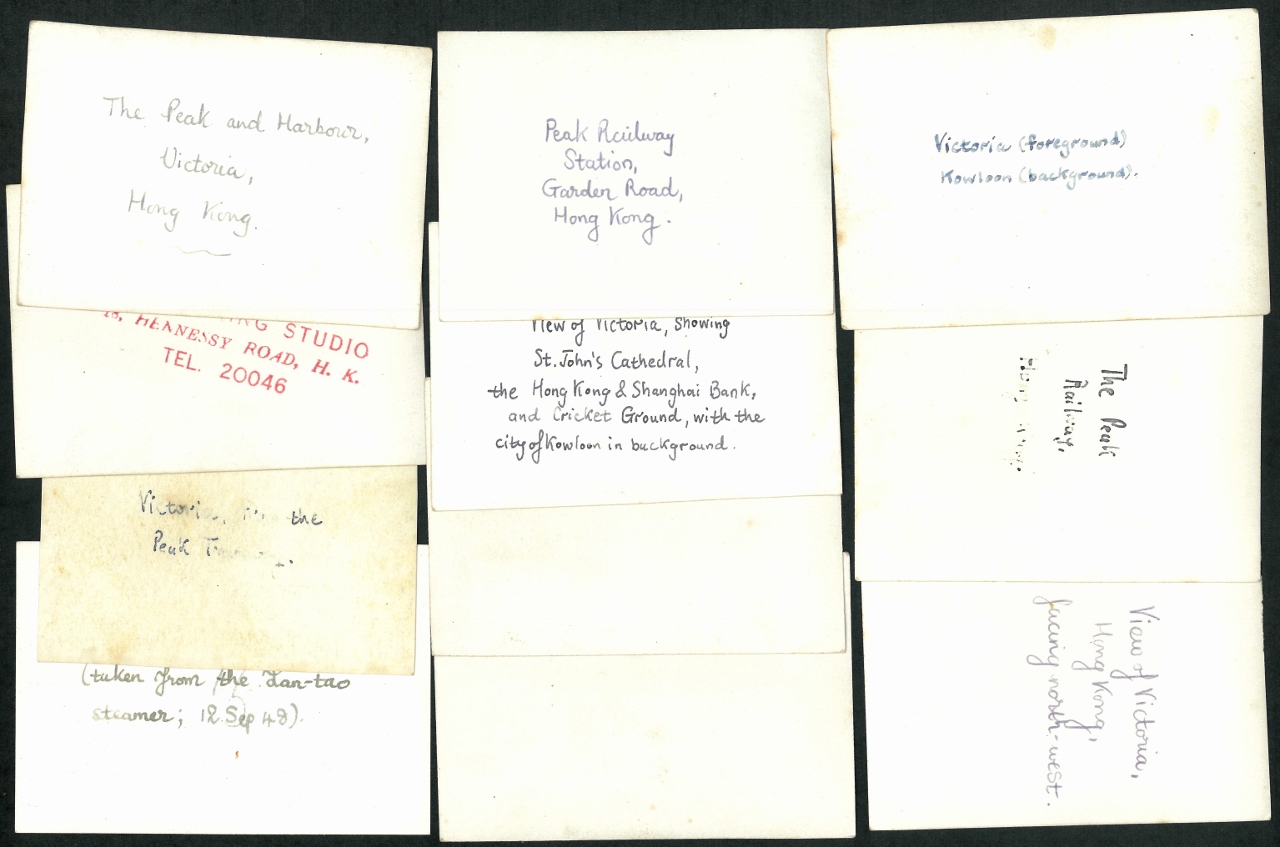 The Peak and Harbour,
Victoria,
Hong Kong.
STUDIO
HENNESSY ROAD, H. K.
TEL. 20046
the
Peak
(taken from the Lan-tao
steamer; 12 Sep 48).
Peak Railway
Station,
Garden Road,
Hong Kong.
View of Victoria, showing
St. John's Cathedral,
the Hong Kong & Shanghai Bank,
and Cricket Ground, with the
city of Kowloon in background.
Victoria (foreground)
Kowloon (background).
The Peak
Railway,
View of Victoria,
Hong Kong,
facing north-west.